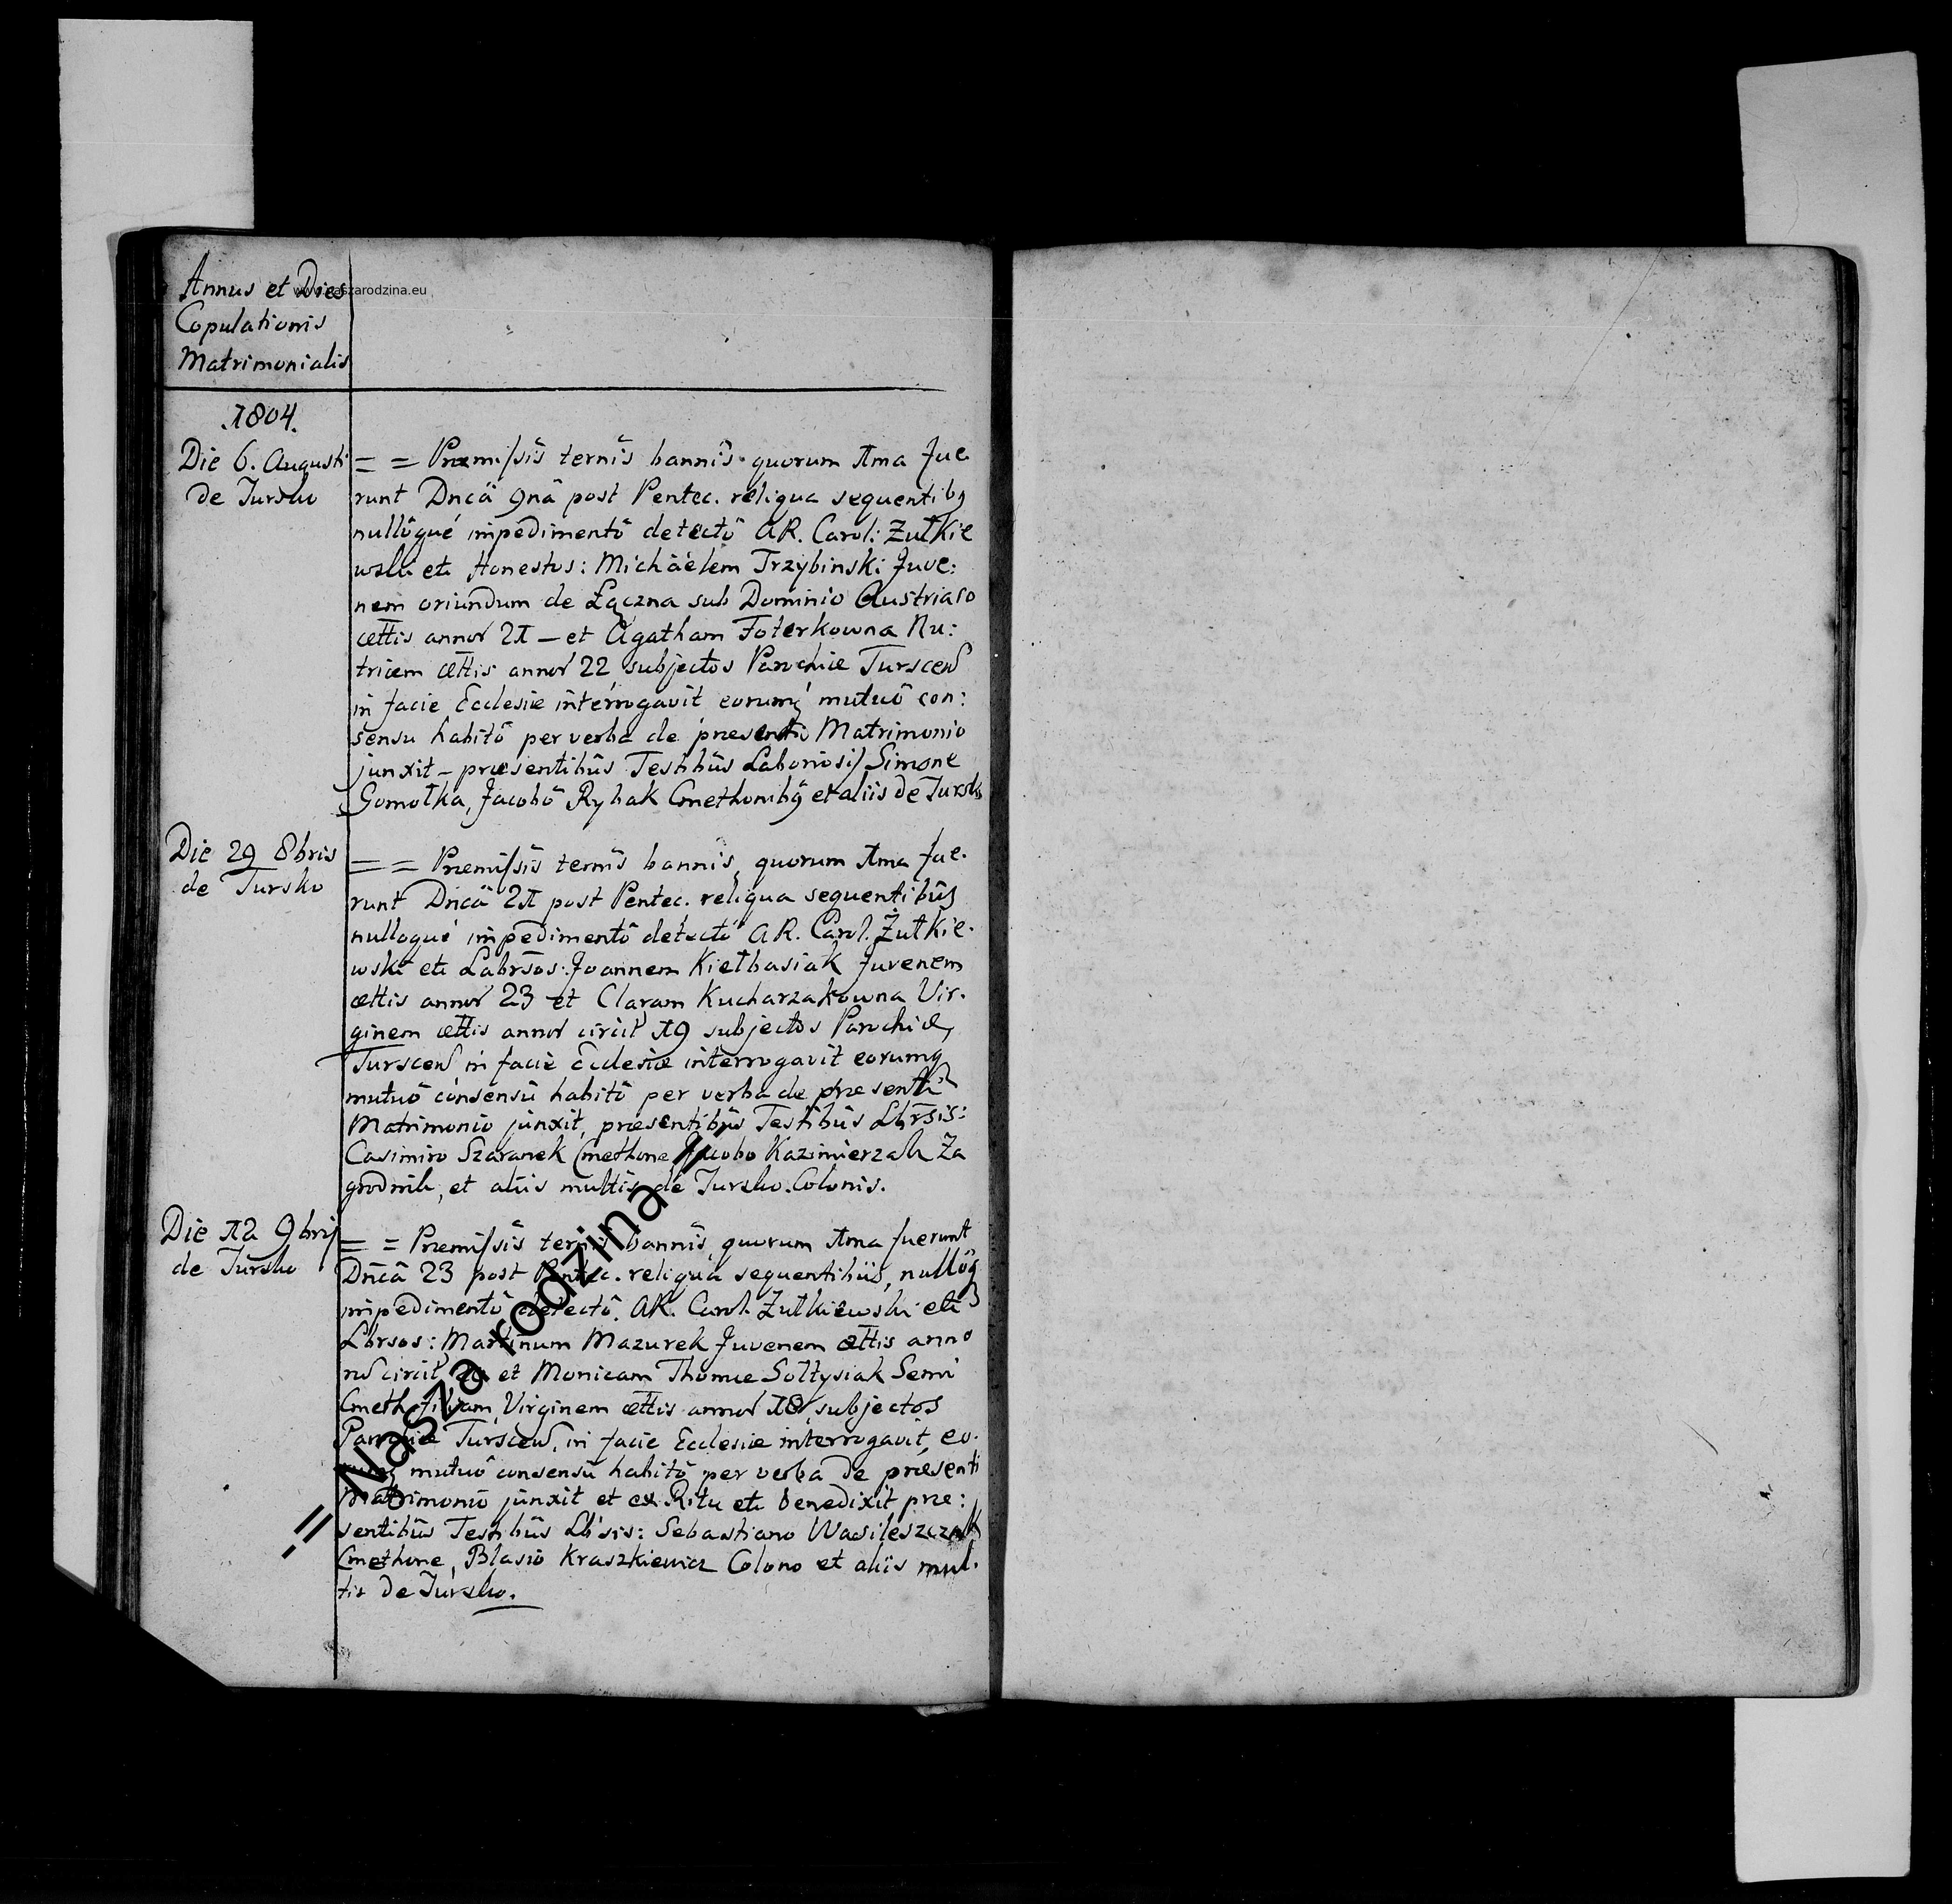 Annus et Dies
www.naszarodzina.eu
Copulationis
Matrimonialis
1804.
Die 6. Augusti
de Tursko
= = Præmissis ternis bannis quorum 1ma fue
runt Dncâ 9nâ post Pentec. reliqua sequentibq
nullôque impedimentô detectô AR. Carol: Żułkie
wski etc Honestos: Michäelem Trzybinski Juve:
nem oriundum de Łączna sub Dominio Austriaco
ættis annor 21 – et Agatham Foterkowna Nu:
tricem ættis annor 22 subjectos Parochiæ Turscen
in facie Ecclesiæ interrogavit eorumq mutuô con:
sensu habitô per verba de præsenti Matrimonio
junxit – præsentibus Testibus Laboriosis Simone
Gomołka, Jacobô Rybak Cmethonibq et aliis de Tursko
Die 29 8bris
de Tursko
= = Præmissis ternis bannis, quorum 1ma fue.
runt Dncâ 21 post Pentec. reliqua sequentibus
nulloque impedimentô detectô AR. Carol. Żułkie.
wski etc Labrsos: Joannem Kiełbasiak Juvenem
ættis annor 23 et Claram Kucharzakowna Vir.
ginem ættis annor circit 19 subjectos Parochiæ
Turscen in facie Ecclesiæ interrogavit eorumq
mutuô consensu habitô per verba de præsenti
Matrimonio junxit, præsentibus Testibus Lbrsis:
Casimiro Szaranek Cmethone Jacobo Kazimierzak Za
grodnik, et aliis multis de Tursko Colonis.
Die 12 9bris
de Tursko
= = Præmissis ternis bannis, quorum 1ma fuerunt
Dncâ 23 post Pentec. reliqua sequentibus, nullôq
impedimentô detectô AR. Carol. Żułkiewski etc
Lbrsos: Martinum Mazurek Juvenem ættis anno
r circit et Monicam Thomæ Sołtysiak Semi
Cmeth. filiam Virginem ættis annor 18 subjectos
Parochiæ Turscen, in facie Ecclesiæ interrogavit, eo.
rumq mutuô consensu habitô per verba de præsenti
Matrimonio junxit et ex Ritu etc benedixit præ:
sentibus Testibus Lbrsis: Sebastiano Wasileszczak
Cmethone, Blasio Kraszkiewicz Colono et aliis mul.
tis de Tursko.
Nasza rodzina